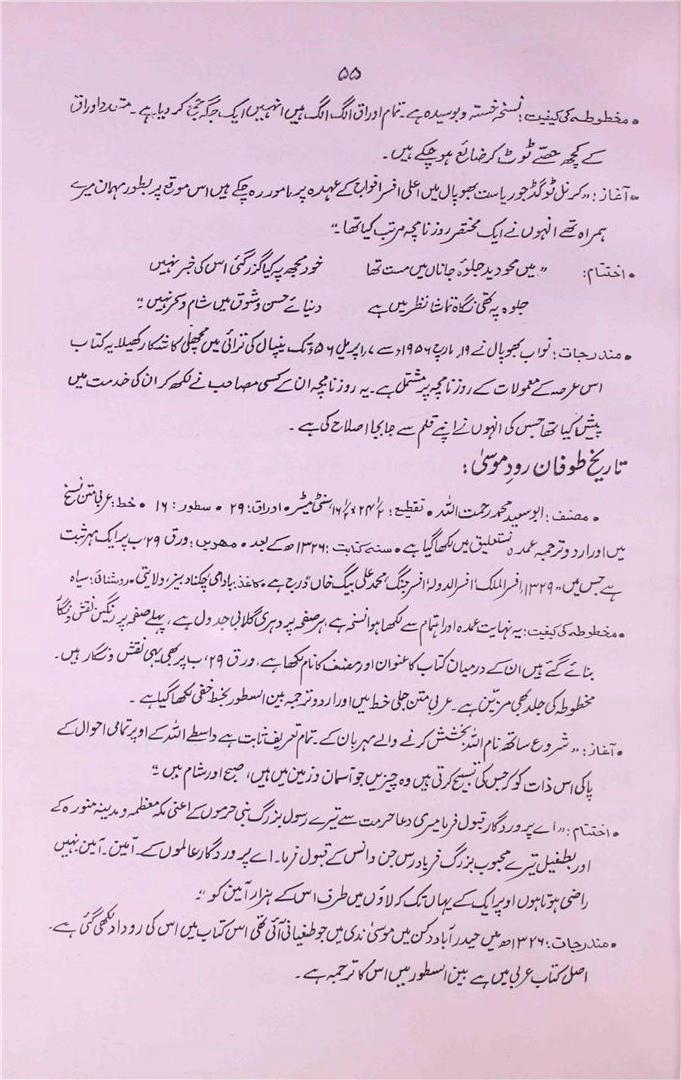 ۵۵
• مخطوطہ کی کیفیت: نسخہ خستہ و بوسیدہ ہے۔ تمام اوراق الگ الگ ہیں انہیں ایک جگہ جمع کر دیا ہے۔ متعدد اوراق
کے کچھ حصّے ٹوٹ کر ضائع ہو چکے ہیں۔
• آغاز: ”کرنل ٹوگڈ جو ریاست بھوپال میں اعلی افسر افواج کے عہدہ پر مامور رہ چکے ہیں اس موقع پر بطور مہمان میرے
ہمراہ تھے انہوں نے ایک مختصر روزنامچہ مرتب کیا تھا۔“
• اختتام: ”میں محو دید جلوۂ جاناں میں مست تھا خود مجھ پہ کیا گزر گئی اس کی خبر نہیں
جلوہ پہ تھی نگاہ تماشا نظر میں ہے دنیائے حسن و شوق میں شام و سحر نہیں“
• مندرجات: نواب بھوپال نے ۱۹ مارچ ۱۹۵۶ء سے ۷ اپریل ۵۶ء تک نیپال کی ترائی میں مچھلی کا شکار کھیلا یہ کتاب
اس عرصہ کے معمولات کے روزنامچہ پر مشتمل ہے۔ یہ روزنامچہ ان کے کسی مصاحب نے لکھ کر ان کی خدمت میں
پیش کیا تھا جس کی انہوں نے اپنے قلم سے جا بجا اصلاح کی ہے۔
تاریخ طوفان رود موسیٰ:
• مصنف: ابو سعید محمد رحمت اللہ • تقطیع: ۲۴½ × ۱۶½ سنٹی میٹر • اوراق: ۲۹ • سطور: ۱۶ • خط: عربی متن نسخ
میں اور اردو ترجمہ عمدہ نستعلیق میں لکھا گیا ہے • سنہ کتابت: ۱۳۲۶ھ کے بعد • مہریں: ورق ۲۹ ب پر ایک مہر ثبت
ہے جس میں ”۱۳۲۹، افسر الملک، افسر الدولہ، افسر جنگ، محمد علی بیگ خاں“ درج ہے • کاغذ: بادامی چکنا دبیز، ولایتی • روشنائی: سیاہ
• مخطوطہ کی کیفیت: یہ نہایت عمدہ اور اہتمام سے لکھا ہوا نسخہ ہے، ہر صفحہ پر دہری گلابی جدول ہے، پہلے صفحہ پر رنگین نقش و نگار
بنائے گئے ہیں ان کے درمیان کتاب کا عنوان اور مصنف کا نام لکھا ہے، ورق ۲۹، ب پر بھی یہی نقش و نگار ہیں۔
مخطوطہ کی جلد بھی مزیّن ہے۔ عربی متن جلی خط میں اور اردو ترجمہ بین السطور بخط خفی لکھا گیا ہے۔
• آغاز: ”شروع ساتھ نام اللہ بخشش کرنے والے مہربان کے۔ تمام تعریف ثابت ہے واسطے اللہ کے اوپر تمامی احوال کے
پاکی اس ذات کو کر جس کی تسبیح کرتی ہیں وہ چیزیں جو آسمان و زمین میں ہیں، صبح اور شام ہیں“
• اختتام: ”اے پروردگار قبول فرما میری دعا حرمت سے تیرے رسول بزرگ نبی حرموں کے اعنی مکہ معظمہ و مدینہ منورہ کے
اور بطفیل تیرے محبوب بزرگ فریاد رس جن و انس کے قبول فرما۔ اے پروردگار عالموں کے۔ آمین۔ آمین نہیں
راضی ہوتا ہوں اوپر ایک کے یہاں تک کہ لاؤں میں طرف اس کے ہزار آمین کو“
• مندرجات: ۱۳۲۶ھ میں حیدرآباد دکن میں موسیٰ ندی میں جو طغیانی آئی تھی اس کتاب میں اس کی روداد لکھی گئی ہے۔
اصل کتاب عربی میں ہے بین السطور میں اس کا ترجمہ ہے۔